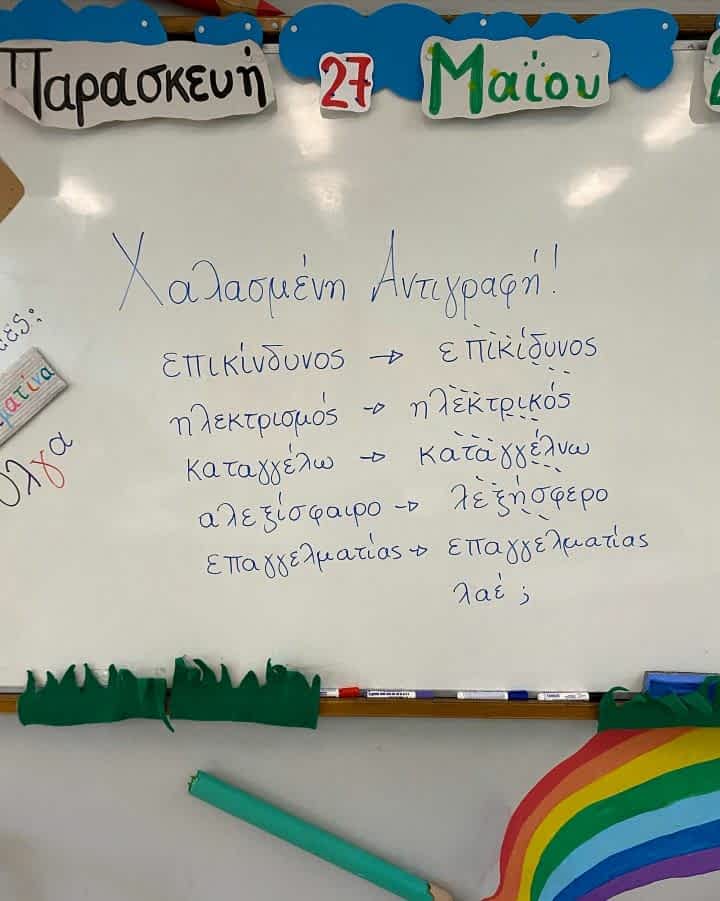 Παρασκευή 27 Μαΐου
Χαλασμένη Αντιγραφή!
επικίνδυνος → επικίδυνος
ηλεκτρισμός → ηλεκτρικός
καταγγέλω → καταγγέλνω
αλεξίσφαιρο → λεξήσφερο
επαγγελματίας → επαγγελματίας
λαέ ;
Όλγα